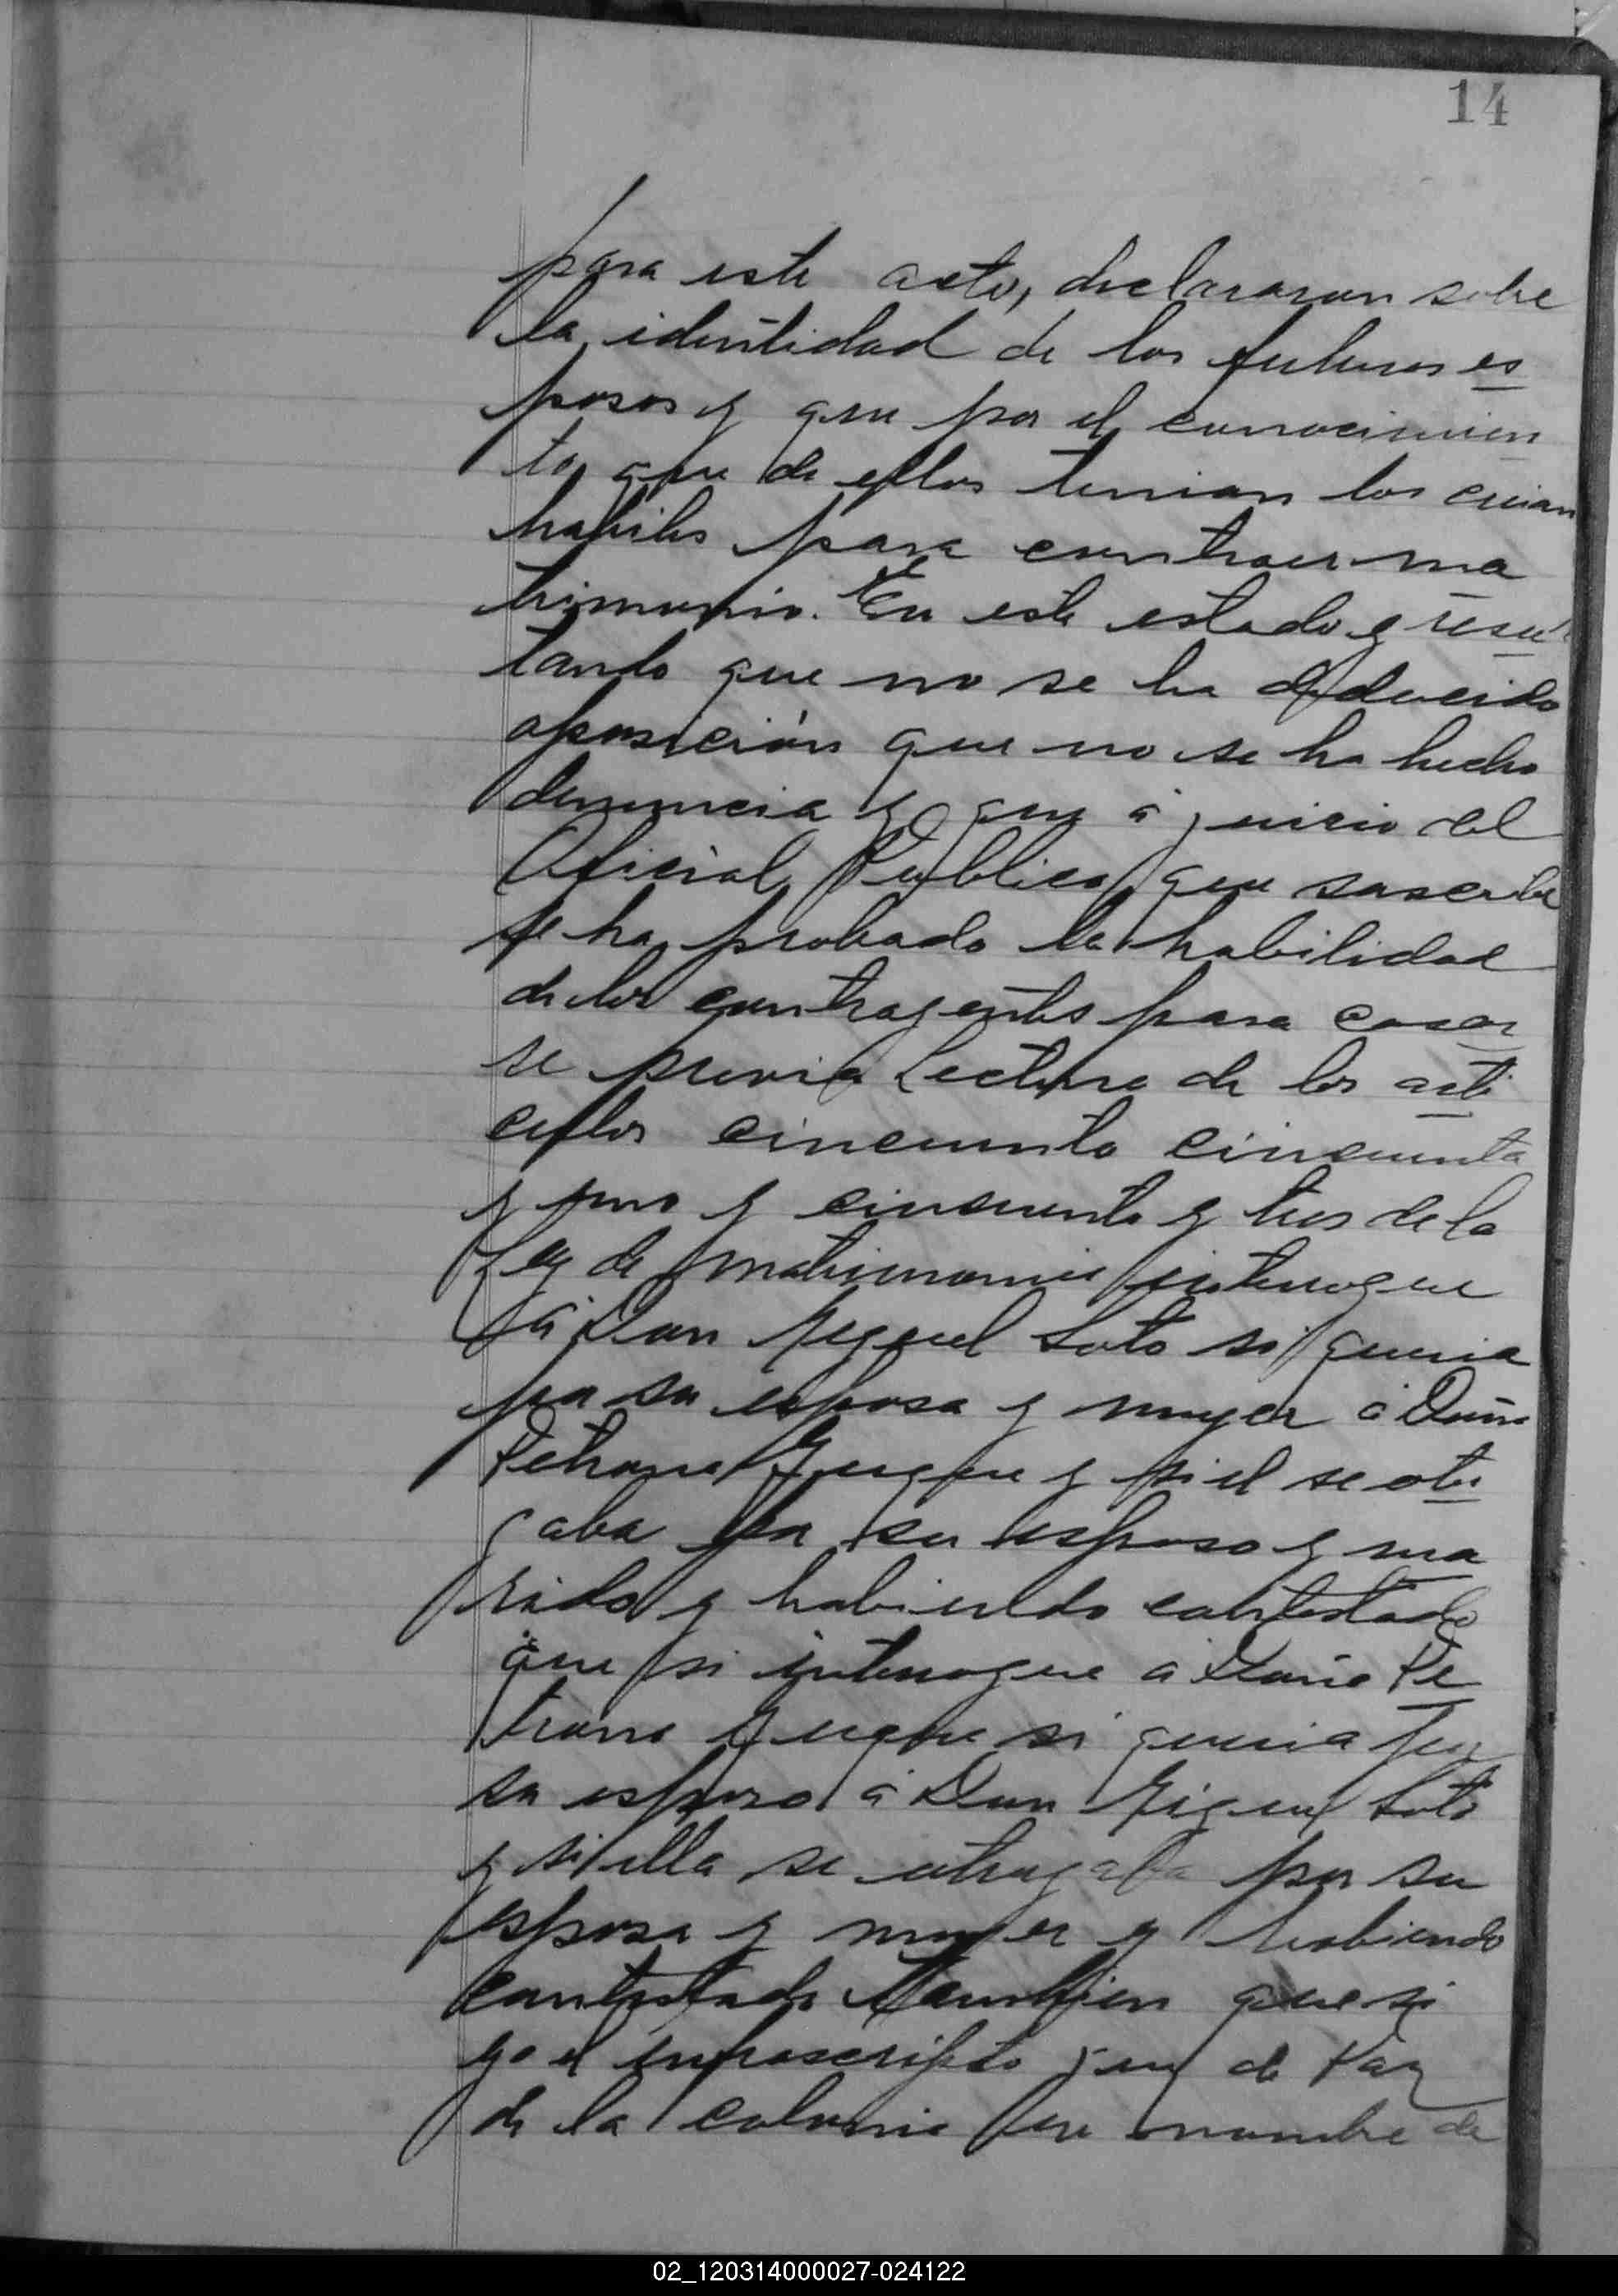 14
para este acto, declararon sobre
la identidad de los futuros es
posos y que por el conocimien
to que de ellos tenian los creian
habiles para contraer ma
trimonio. En este estado y resul
tando que no se ha deducido
oposición que no se ha hecho
denuncia y que á juicio del
Oficial Publico que suscribe
se ha probado la habilidad
de los contrayentes para casar
se previa Lectura de los arti
culos cincuenta cincuenta
y uno y cincuenta y tres de la
Ley de matrimonio interrogue
á Don Miguel Soto si queria
por su esposa y muger á Doña
Petrona y si el se otor
gaba por su esposo y ma
rido y habiendo contestado
que si interrogue a Doña Pe
trona si queria por
su esposo á Don Miguel Soto
y si ella se otorgaba por su
esposa y muger y habiendo
contestado tambien que si
yo el infrascripto juez de Paz
de la colonia en nombre de
02_120314000027-024122